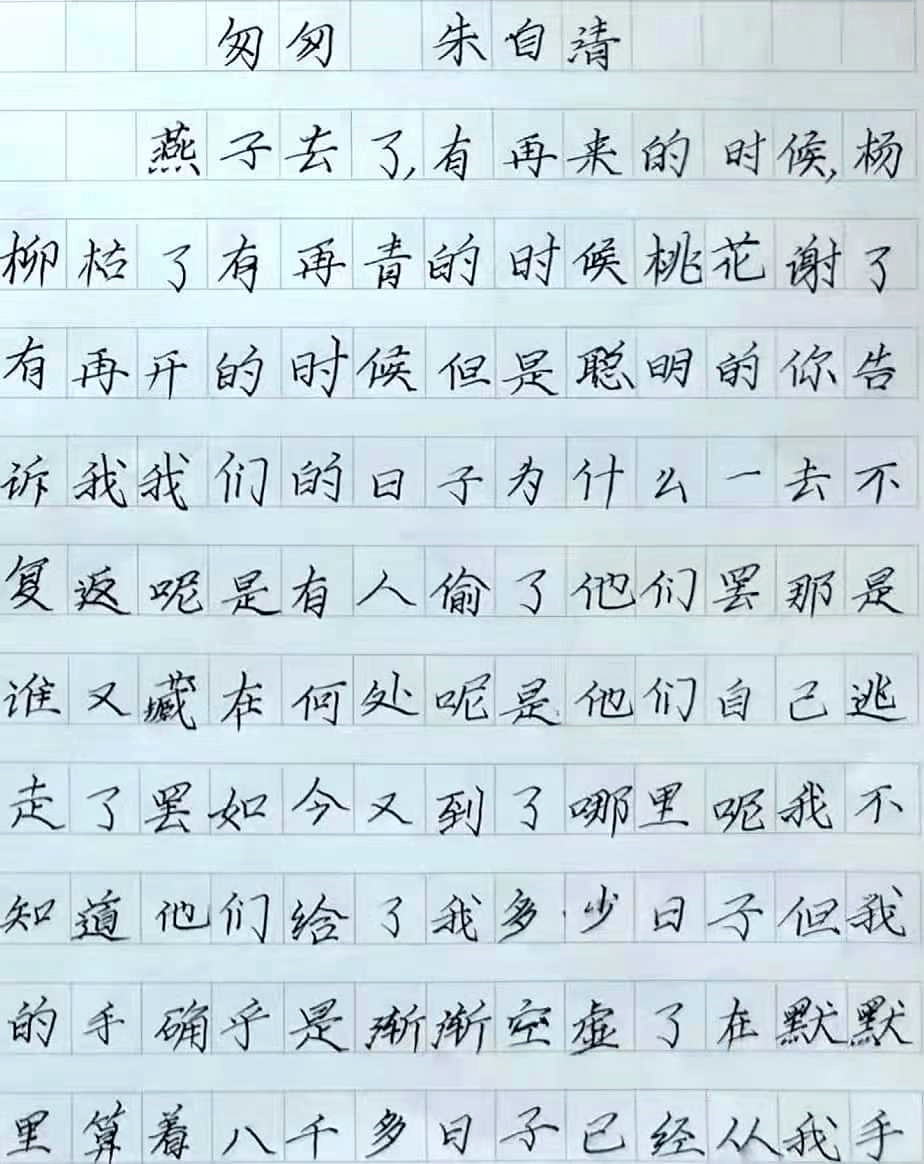 匆匆 朱自清
燕子去了,有再来的时候,杨
柳枯了有再青的时候桃花谢了
有再开的时候但是聪明的你告
诉我我们的日子为什么一去不
复返呢是有人偷了他们罢那是
谁又藏在何处呢是他们自己逃
走了罢如今又到了哪里呢我不
知道他们给了我多少日子但我
的手确乎是渐渐空虚了在默默
里算着八千多日子已经从我手